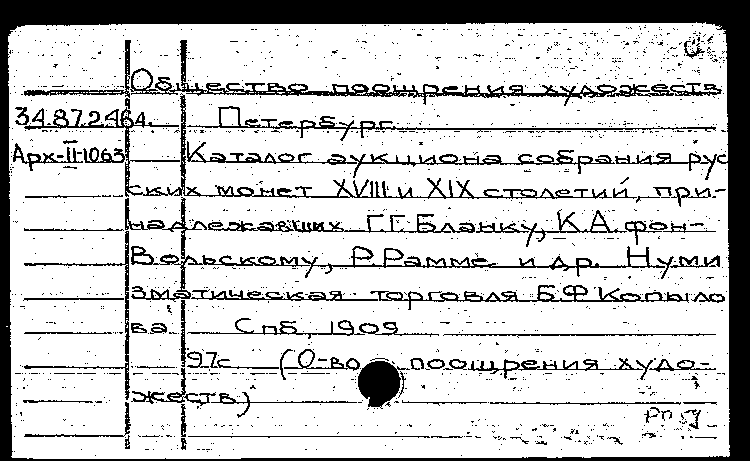 Общество поощрения художеств
34.87.2464. Петербург.
Арх-II-1063 Каталог аукциона собрания рус
ских монет XVIII и XIX столетий, при-
надлежавших Г.Г. Бланку, К.А. фон-
Вольскому, Р. Рамме и др. Нуми
зматическая торговля Б.Ф Копыло
ва. Спб, 1909
97с (О-во поощрения худо-
жеств)